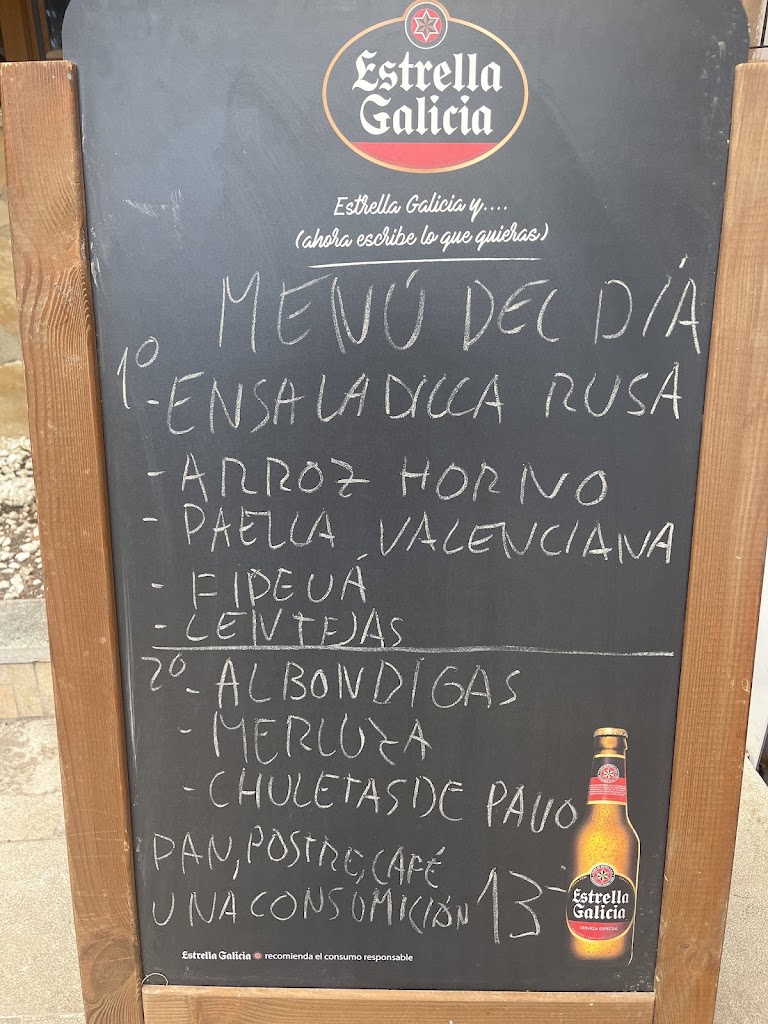 Estrella
Galicia
Estrella Galicia y....
(ahora escribe lo que quieras)
MENÚ DEL DÍA
1º
- ENSALADILLA RUSA
- ARROZ HORNO
- PAELLA VALENCIANA
- FIDEUÁ
- LENTEJAS
2º - ALBONDIGAS
- MERLUZA
- CHULETAS DE PAVO
PAN, POSTRE, CAFÉ
UNA CONSUMICIÓN 13-
Estrella
Galicia
CERVEZA ESPECIAL
Estrella Galicia recomienda el consumo responsable